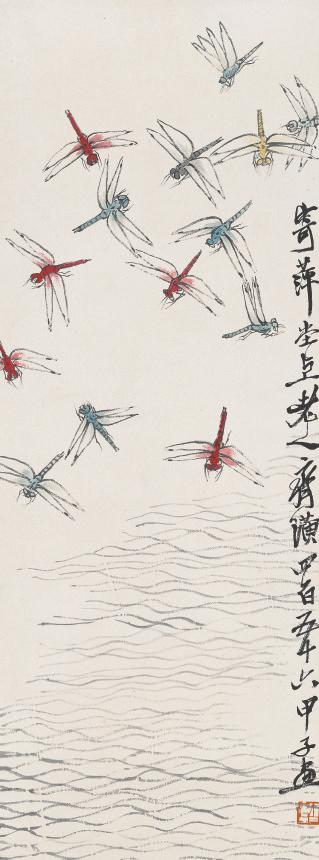 寄萍堂上老人齊璜四百五十六甲子畫